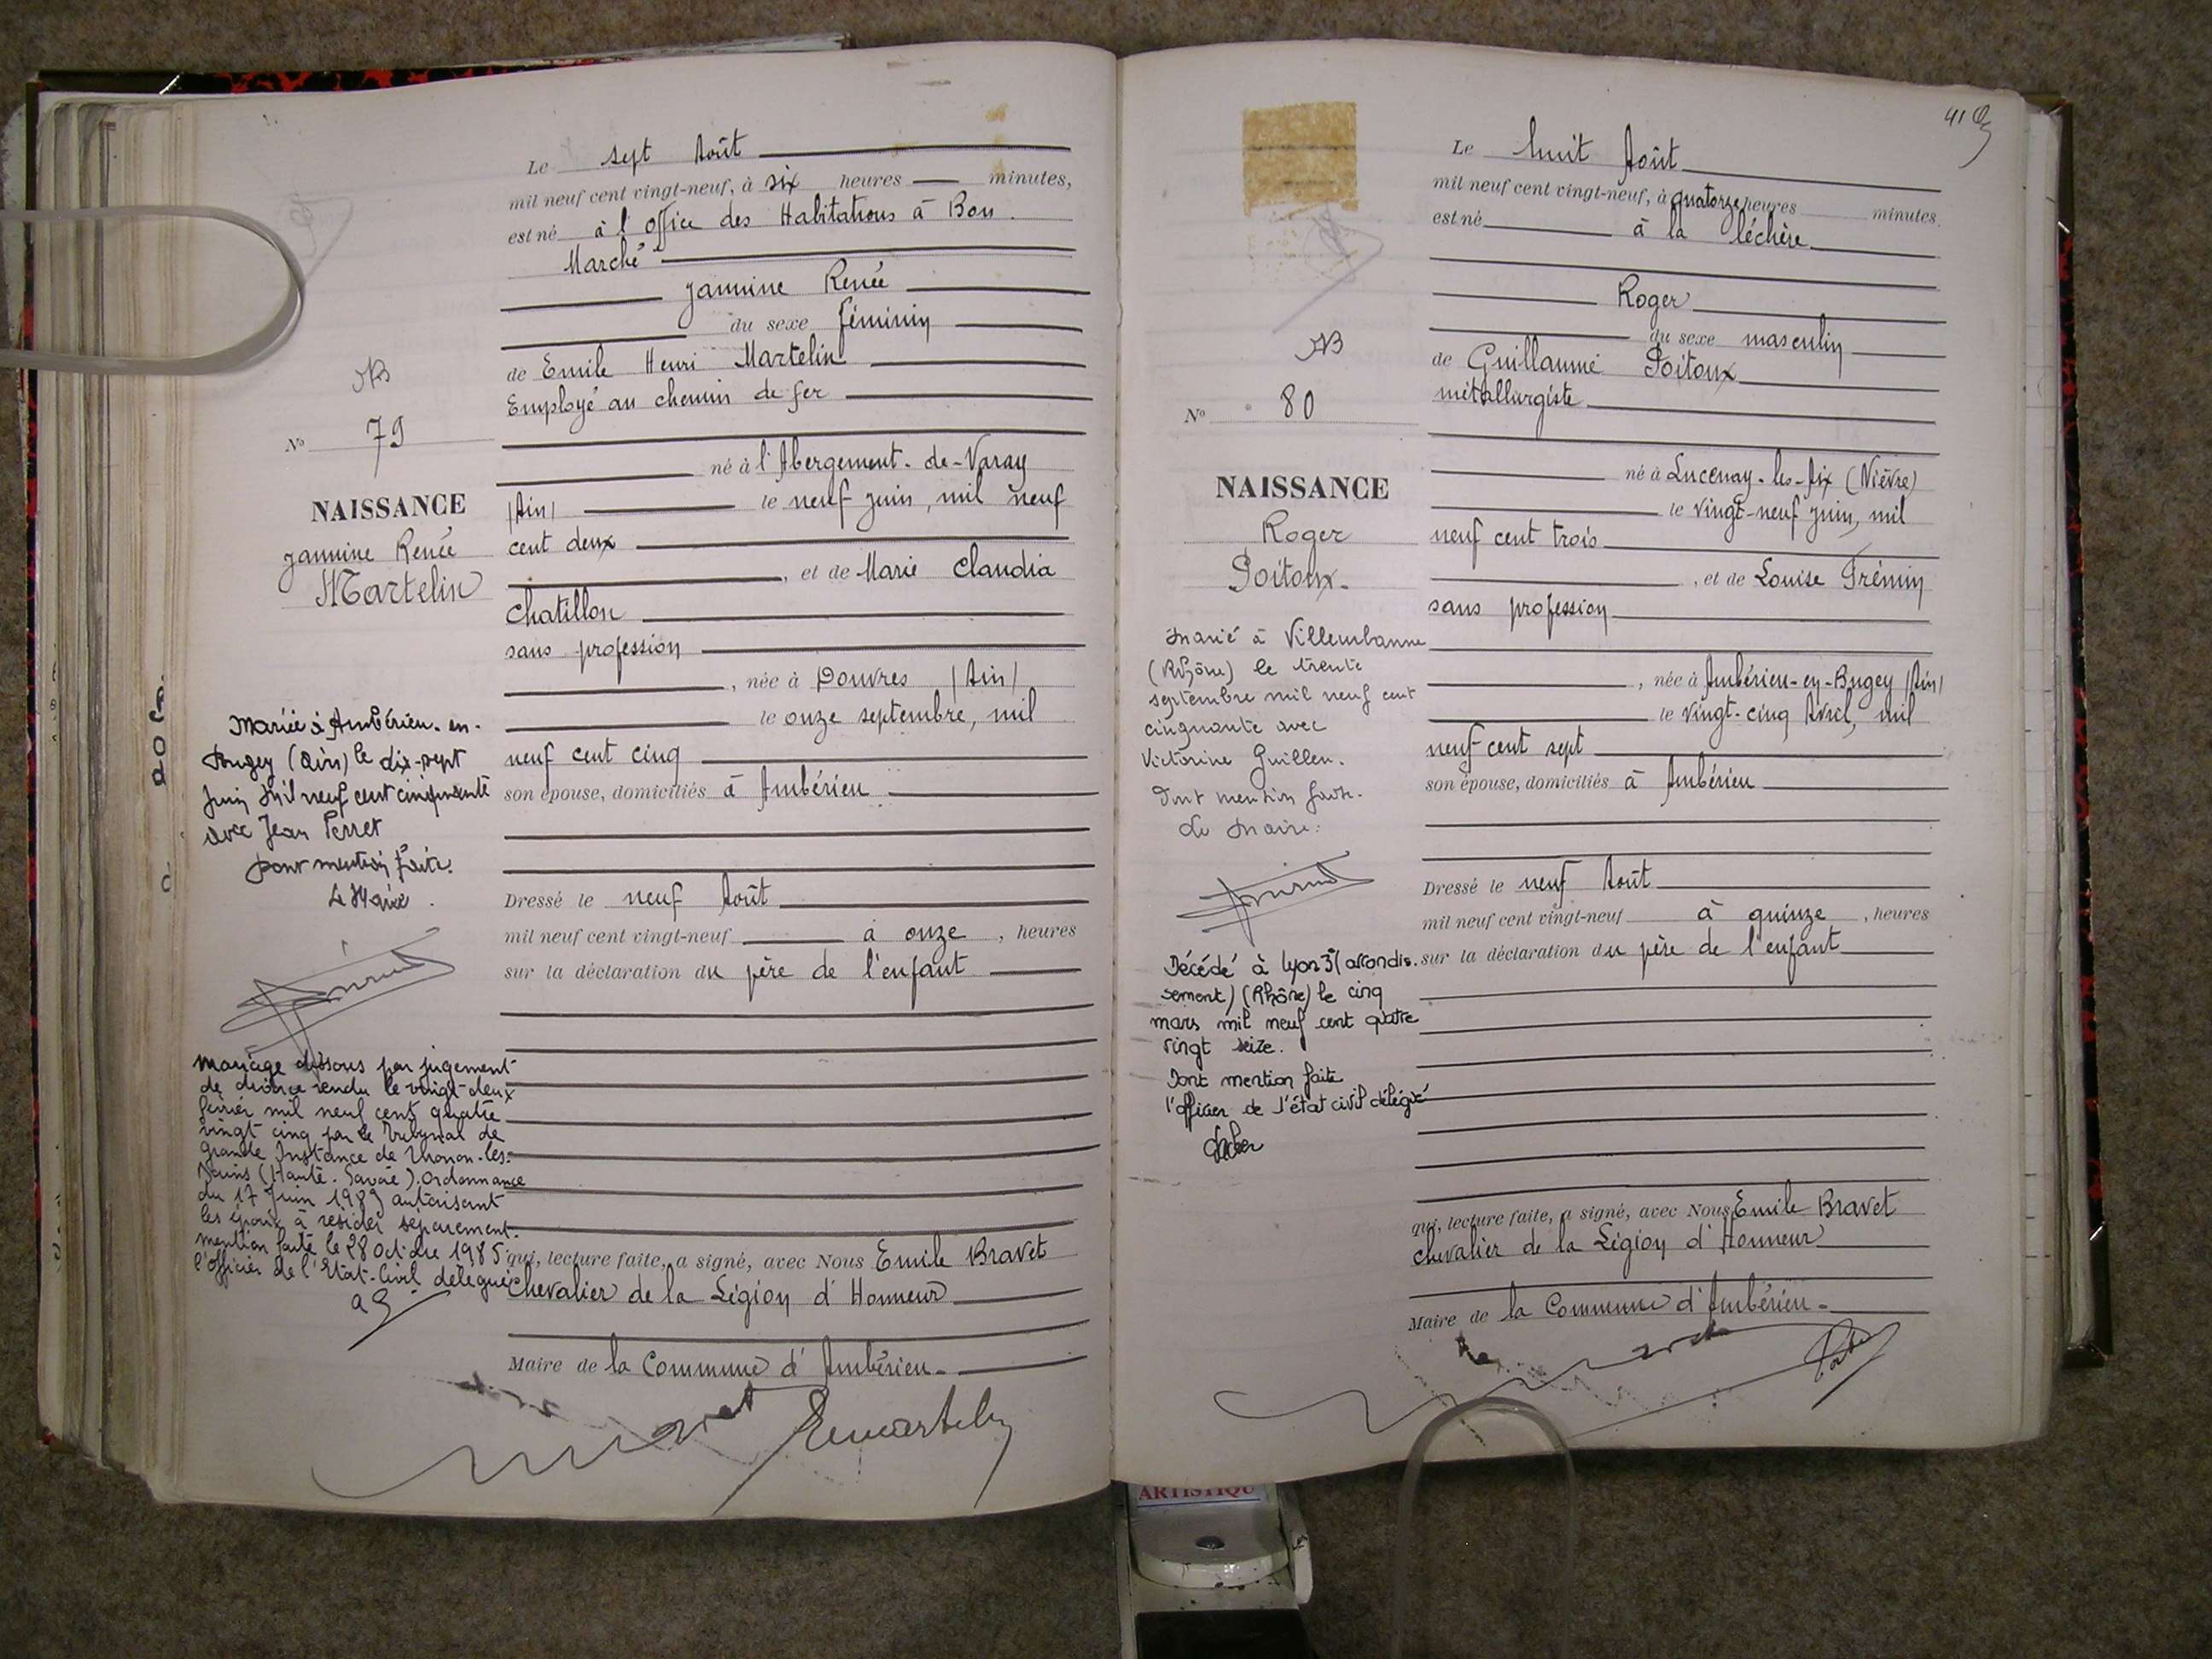 Le sept Août
mil neuf cent vingt-neuf, à six heures minutes,
est né à l'office des Habitations à Bon
Marché
Jannine Renée
du sexe féminin
de Emile Henri Martelin
Employé au chemin de fer
né à l'Abergement-de-Varay
(Ain) le neuf juin, mil neuf
cent deux
, et de Marie Claudia
Chatillon
sans profession
, née à Douvres (Ain)
le onze septembre, mil
neuf cent cinq
son épouse, domiciliés à Ambérieu
Dressé le neuf Août
mil neuf cent vingt-neuf à onze, heures
sur la déclaration du père de l'enfant
qui, lecture faite, a signé, avec Nous Emile Bravet
chevalier de la Légion d'Honneur
Maire de la Commune d'Ambérieu.
N° 79
NAISSANCE
Jannine Renée
Martelin
Mariée à Ambérieu-en-
Bugey (Ain) le dix-sept
Juin Mil neuf cent cinquante
avec Jean Perret
pour mention faite.
Le Maire.
Mariage dissous par jugement
de divorce rendu le vingt-deux
février mil neuf cent quatre
vingt cinq par le Tribunal de
Grande Instance de Thonon-les-
Bains (Haute-Savoie). Ordonnance
du 17 Juin 1983 autorisant
les époux à résider séparément.
mention faite le 28 octobre 1985
l'officier de l'Etat-Civil délégué
41
Le huit Août
mil neuf cent vingt-neuf, à quatorze heures minutes.
est né à la léchère
Roger
du sexe masculin
de Guillaume Poitoux
métallurgiste
né à Lucenay-les-Aix (Nièvre)
le vingt-neuf juin, mil
neuf cent trois
, et de Louise Trémin
sans profession
, née à Ambérieu-en-Bugey (Ain)
le vingt-cinq Avril, mil
neuf cent sept
son épouse, domiciliés à Ambérieu
Dressé le neuf Août
mil neuf cent vingt-neuf à quinze, heures
sur la déclaration du père de l'enfant
qui, lecture faite, a signé, avec Nous Emile Bravet
chevalier de la Légion d'Honneur
Maire de la Commune d'Ambérieu.
N° 80
NAISSANCE
Roger
Poitoux.
Marié à Villeurbanne
(Rhône) le trente
septembre mil neuf cent
cinquante avec
Victorine Guillen.
Dont mention faite.
Le Maire:
Décédé à Lyon 3 (arrondis.
sement) (Rhône) le cinq
mars mil neuf cent quatre
vingt seize.
Dont mention faite
l'officier de l'état civil délégué
ARTISTIQU